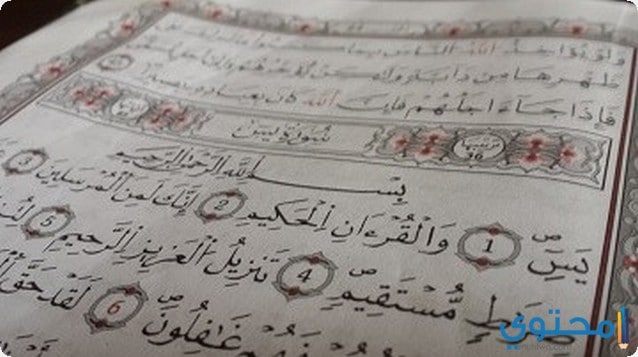 وَلَوْ يُؤَاخِذُ اللَّهُ النَّاسَ بِمَا كَسَبُوا مَا
ظَهْرِهَا مِن دَآبَّةٍ وَلَٰكِن يُؤَخِّرُهُمْ إِلَىٰٓ أَجَلٍ
فَإِذَا جَآءَ أَجَلُهُمْ فَإِنَّ اللَّهَ كَانَ بِعِبَادِهِ بَصِيرًا
سُورَةُ يسٓ ترتيبها 36
بِسْمِ اللَّهِ الرَّحْمَٰنِ الرَّحِيمِ
يسٓ 1 وَالْقُرْءَانِ الْحَكِيمِ 2 إِنَّكَ لَمِنَ الْمُرْسَلِينَ 3
صِرَٰطٍ مُّسْتَقِيمٍ 4 تَنزِيلَ الْعَزِيزِ الرَّحِيمِ 5
فَهُمْ غَٰفِلُونَ 6 لَقَدْ حَقَّ
محتوي